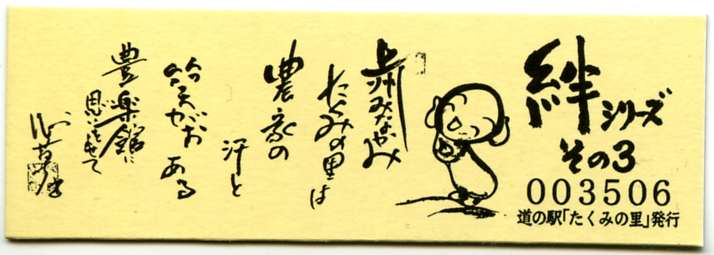 絆
シリーズ
その3
003506
道の駅「たくみの里」発行
上州みなかみ
たくみの里は
農家の
汗と
笑がお
ある
豊楽館に
思いをよせて